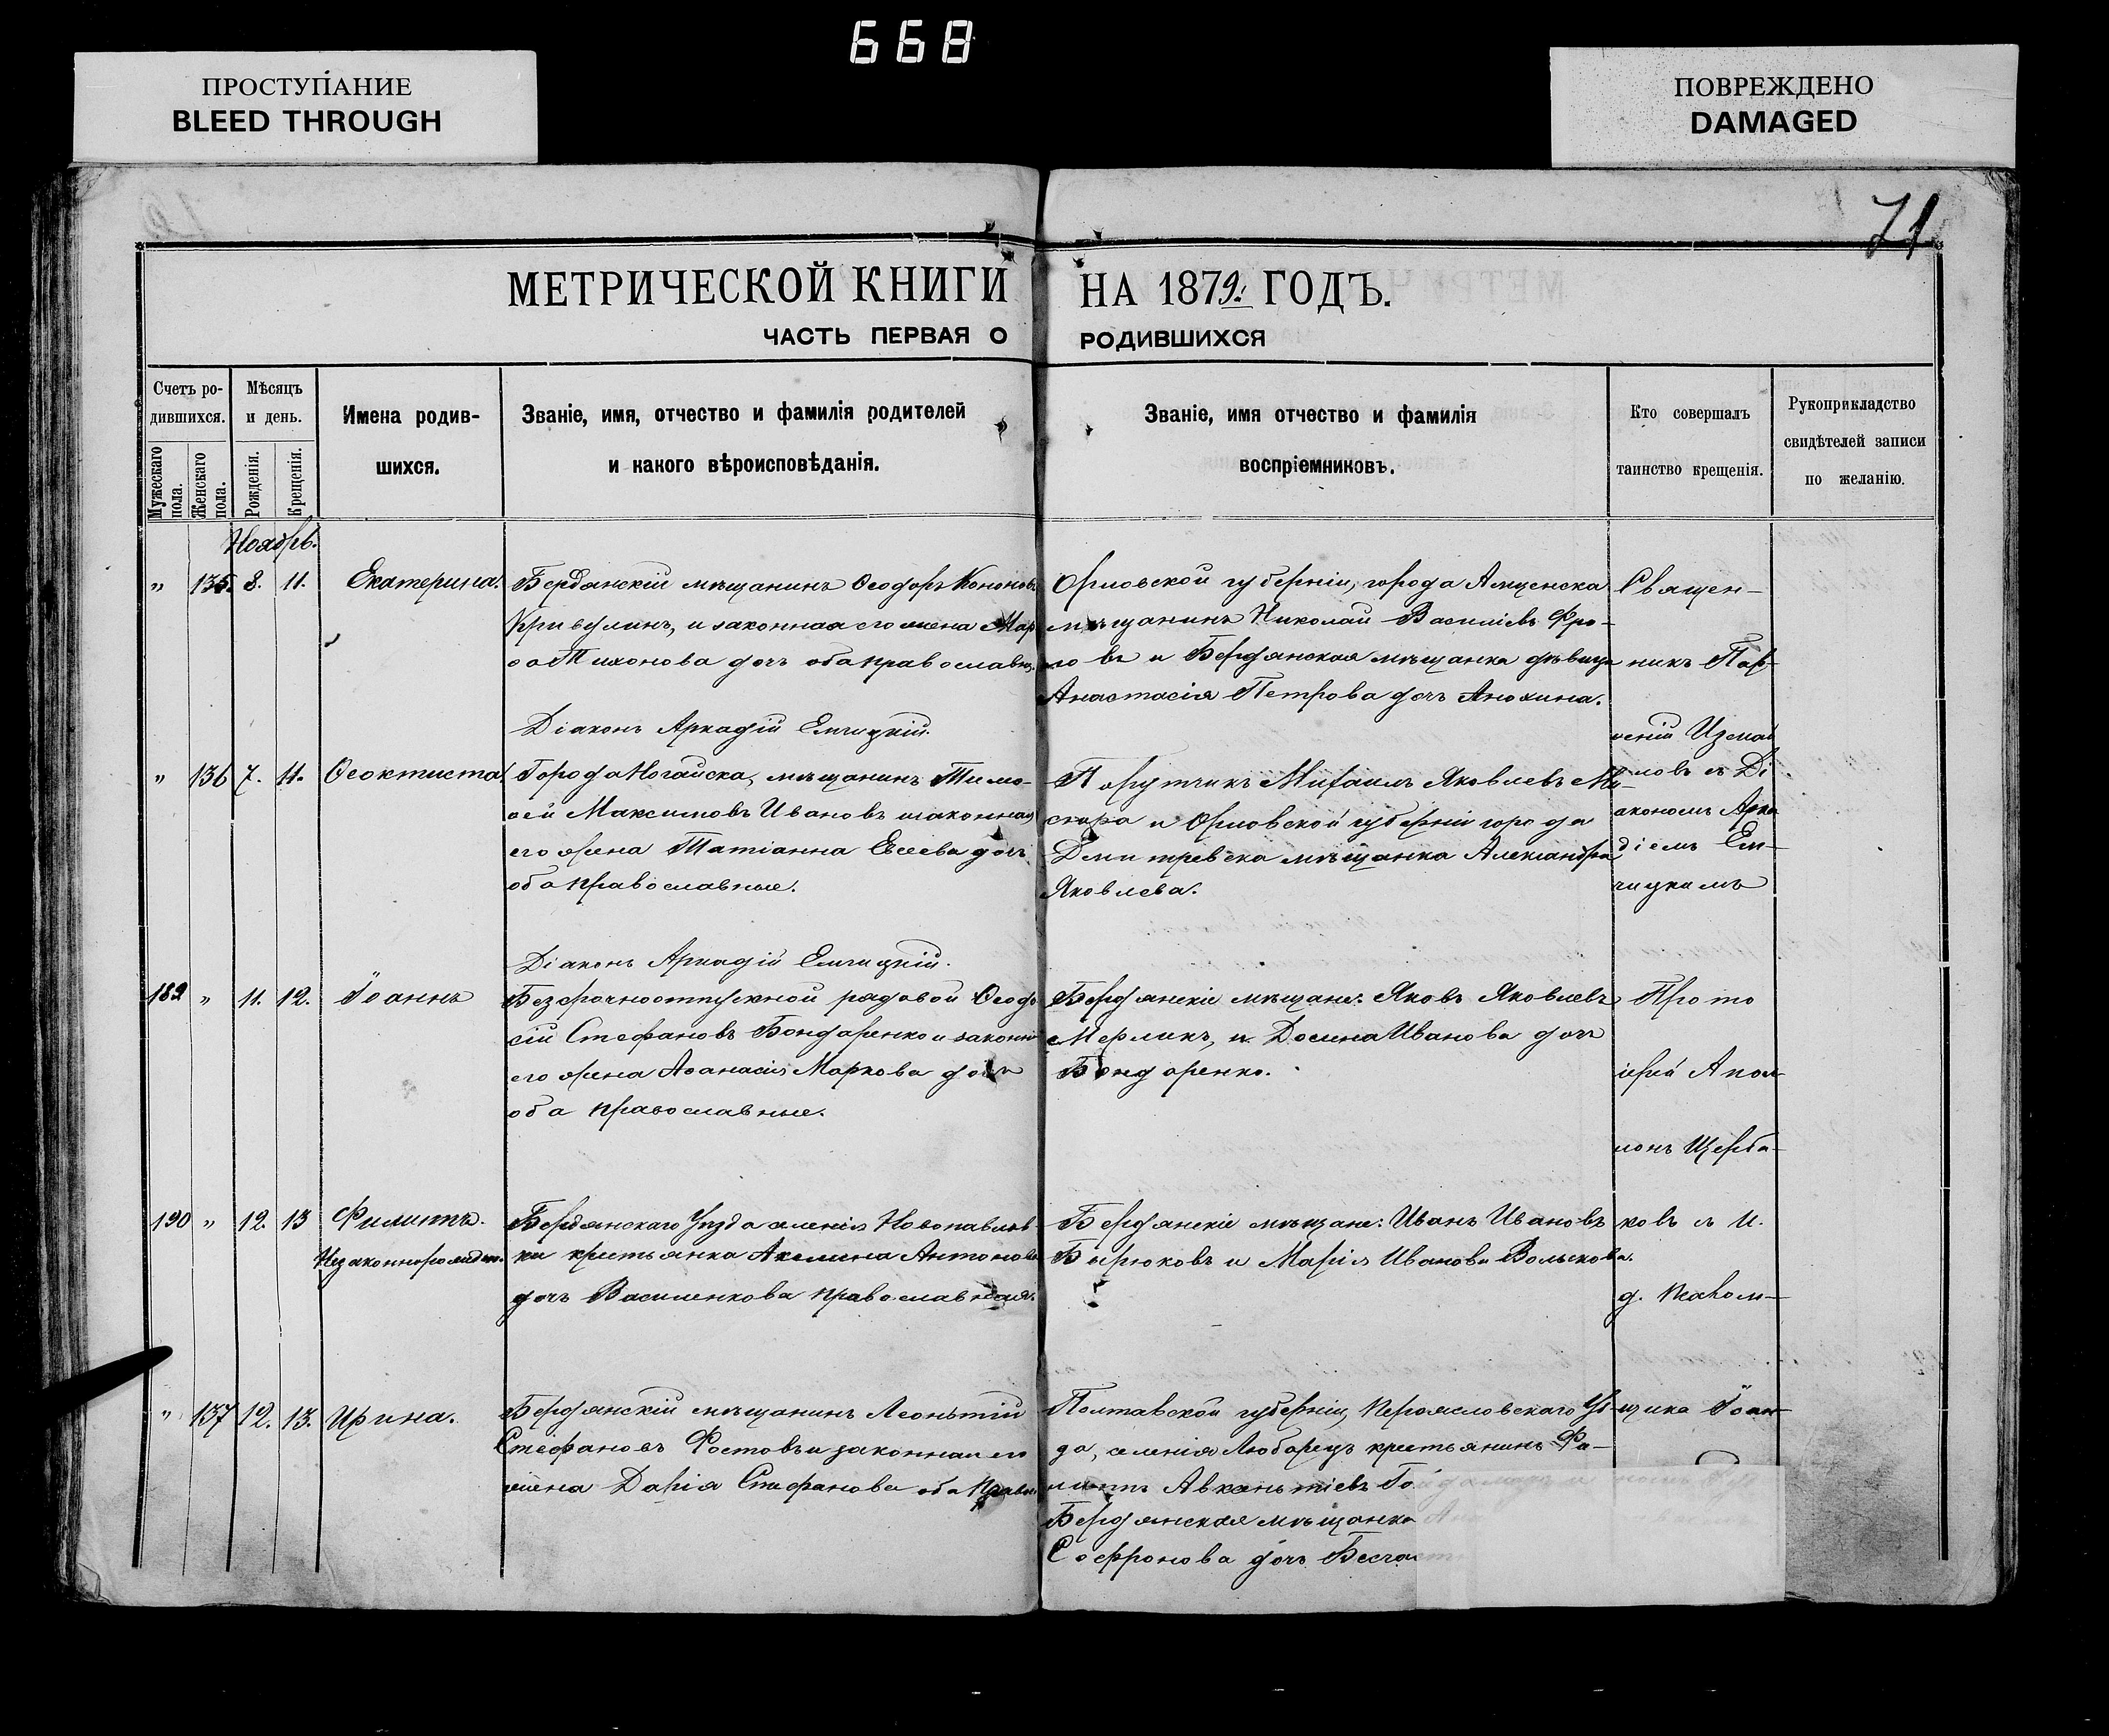 668
ПРОСТУПАНИЕ
BLEED THROUGH
ПОВРЕЖДЕНО
DAMAGED
71
МЕТРИЧЕСКОЙ КНИГИ НА 1879: ГОДЪ.
ЧАСТЬ ПЕРВАЯ О РОДИВШИХСЯ
Счетъ ро-
дившихся.
Мужескаго пола.
Женскаго пола.
Мѣсяцъ
и день.
Рожденія.
Крещенія.
Имена родив-
шихся.
Званіе, имя, отчество и фамилія родителей
и какого вѣроисповѣданія.
Званіе, имя отчество и фамилія
воспріемниковъ.
Кто совершалъ
таинство крещенія.
Рукоприкладство
свидѣтелей записи
по желанію.
Ноябрь.
" 135. 8. 11. Екатерина.
Бердянскій мѣщанинъ Ѳеодоръ Кононовъ
Кривулинъ, и законная его жена Мар
ѳа Тихонова дочь оба православн.
Діаконъ Аркадій Емчицкій.
Орловской губерніи, города Амценска
мѣщанинъ Николай Василіевъ Фро-
ловъ и Бердянская мѣщанка дѣвица
Анастасія Петрова дочь Анохина.
Священ-
никъ Пар-
ѳеній Измай
ловъ съ Ді
акономъ Арка
діемъ Ем-
чицкимъ
" 136 7. 11. Ѳеоктиста
Города Ногайска, мѣщанинъ Тимо-
ѳей Максимовъ Ивановъ и законная
его жена Татіанна Евсеева дочь
оба православные.
Діаконъ Аркадій Емчицкій.
Порутчикъ Михаилъ Яковлевъ
и Орловской губерніи города
Дмитревска мѣщанка Александра
Яковлева.
189 " 11. 12. Іоаннъ
Безсрочноотпускной рядовой Ѳеодо
сій Стефановъ Бондаренко и законн
его жена Аѳанасія Маркова дочь
оба православные.
Бердянскіе мѣщане: Яковъ Яковлевъ
Мерликъ, и Домна Иванова дочь
Бондаренко.
Прото
іерей Апол-
лонъ Щерба-
190 " 12. 13 Филиппъ.
Незаконнорожден.
Бердянскаго Уѣзда селенія Новопавлов
ки крестьянка Акелина Антонова
дочь Василенкова православная.
Бердянскіе мѣщане: Иванъ Ивановъ
Бирюковъ и Марія Иванова Волькова.
ковъ съ и.
д. псалом-
" 137 12. 13. Ирина.
Бердянскій мѣщанинъ Леоньтій
Стефановъ Ростовъ и законная его
жена Дарія Стефанова оба Правос
Полтавской губерніи, Переясловскаго Уѣ-
да, селенія Любарецъ крестьянинъ Фи-
липпъ Авксеньтіевъ
Бердянская мѣщанка
Софронова дочь
щика Іоан-